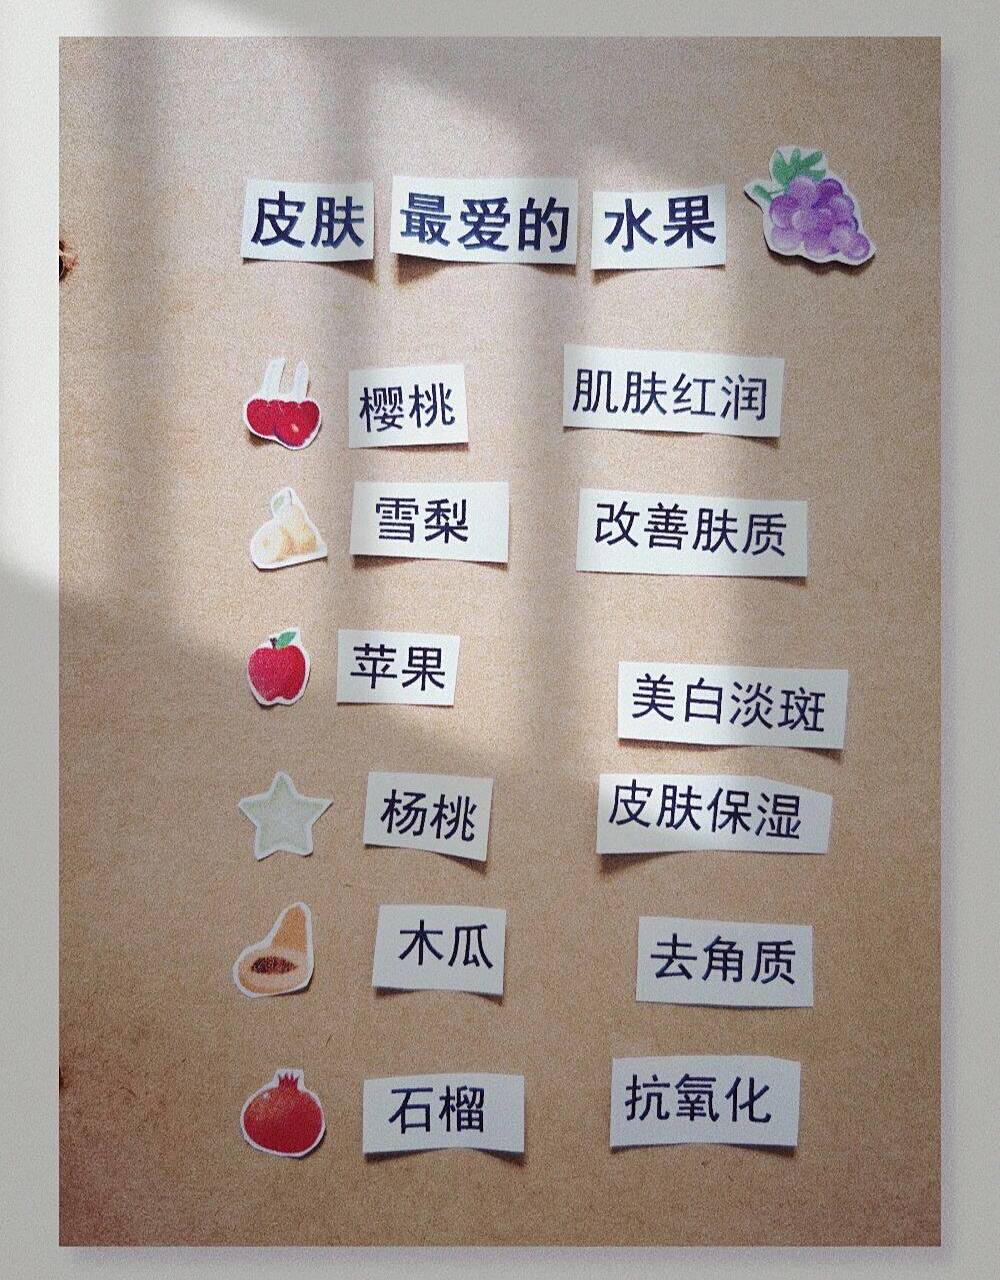 皮肤 最爱的 水果
樱桃 肌肤红润
雪梨 改善肤质
苹果 美白淡斑
杨桃 皮肤保湿
木瓜 去角质
石榴 抗氧化